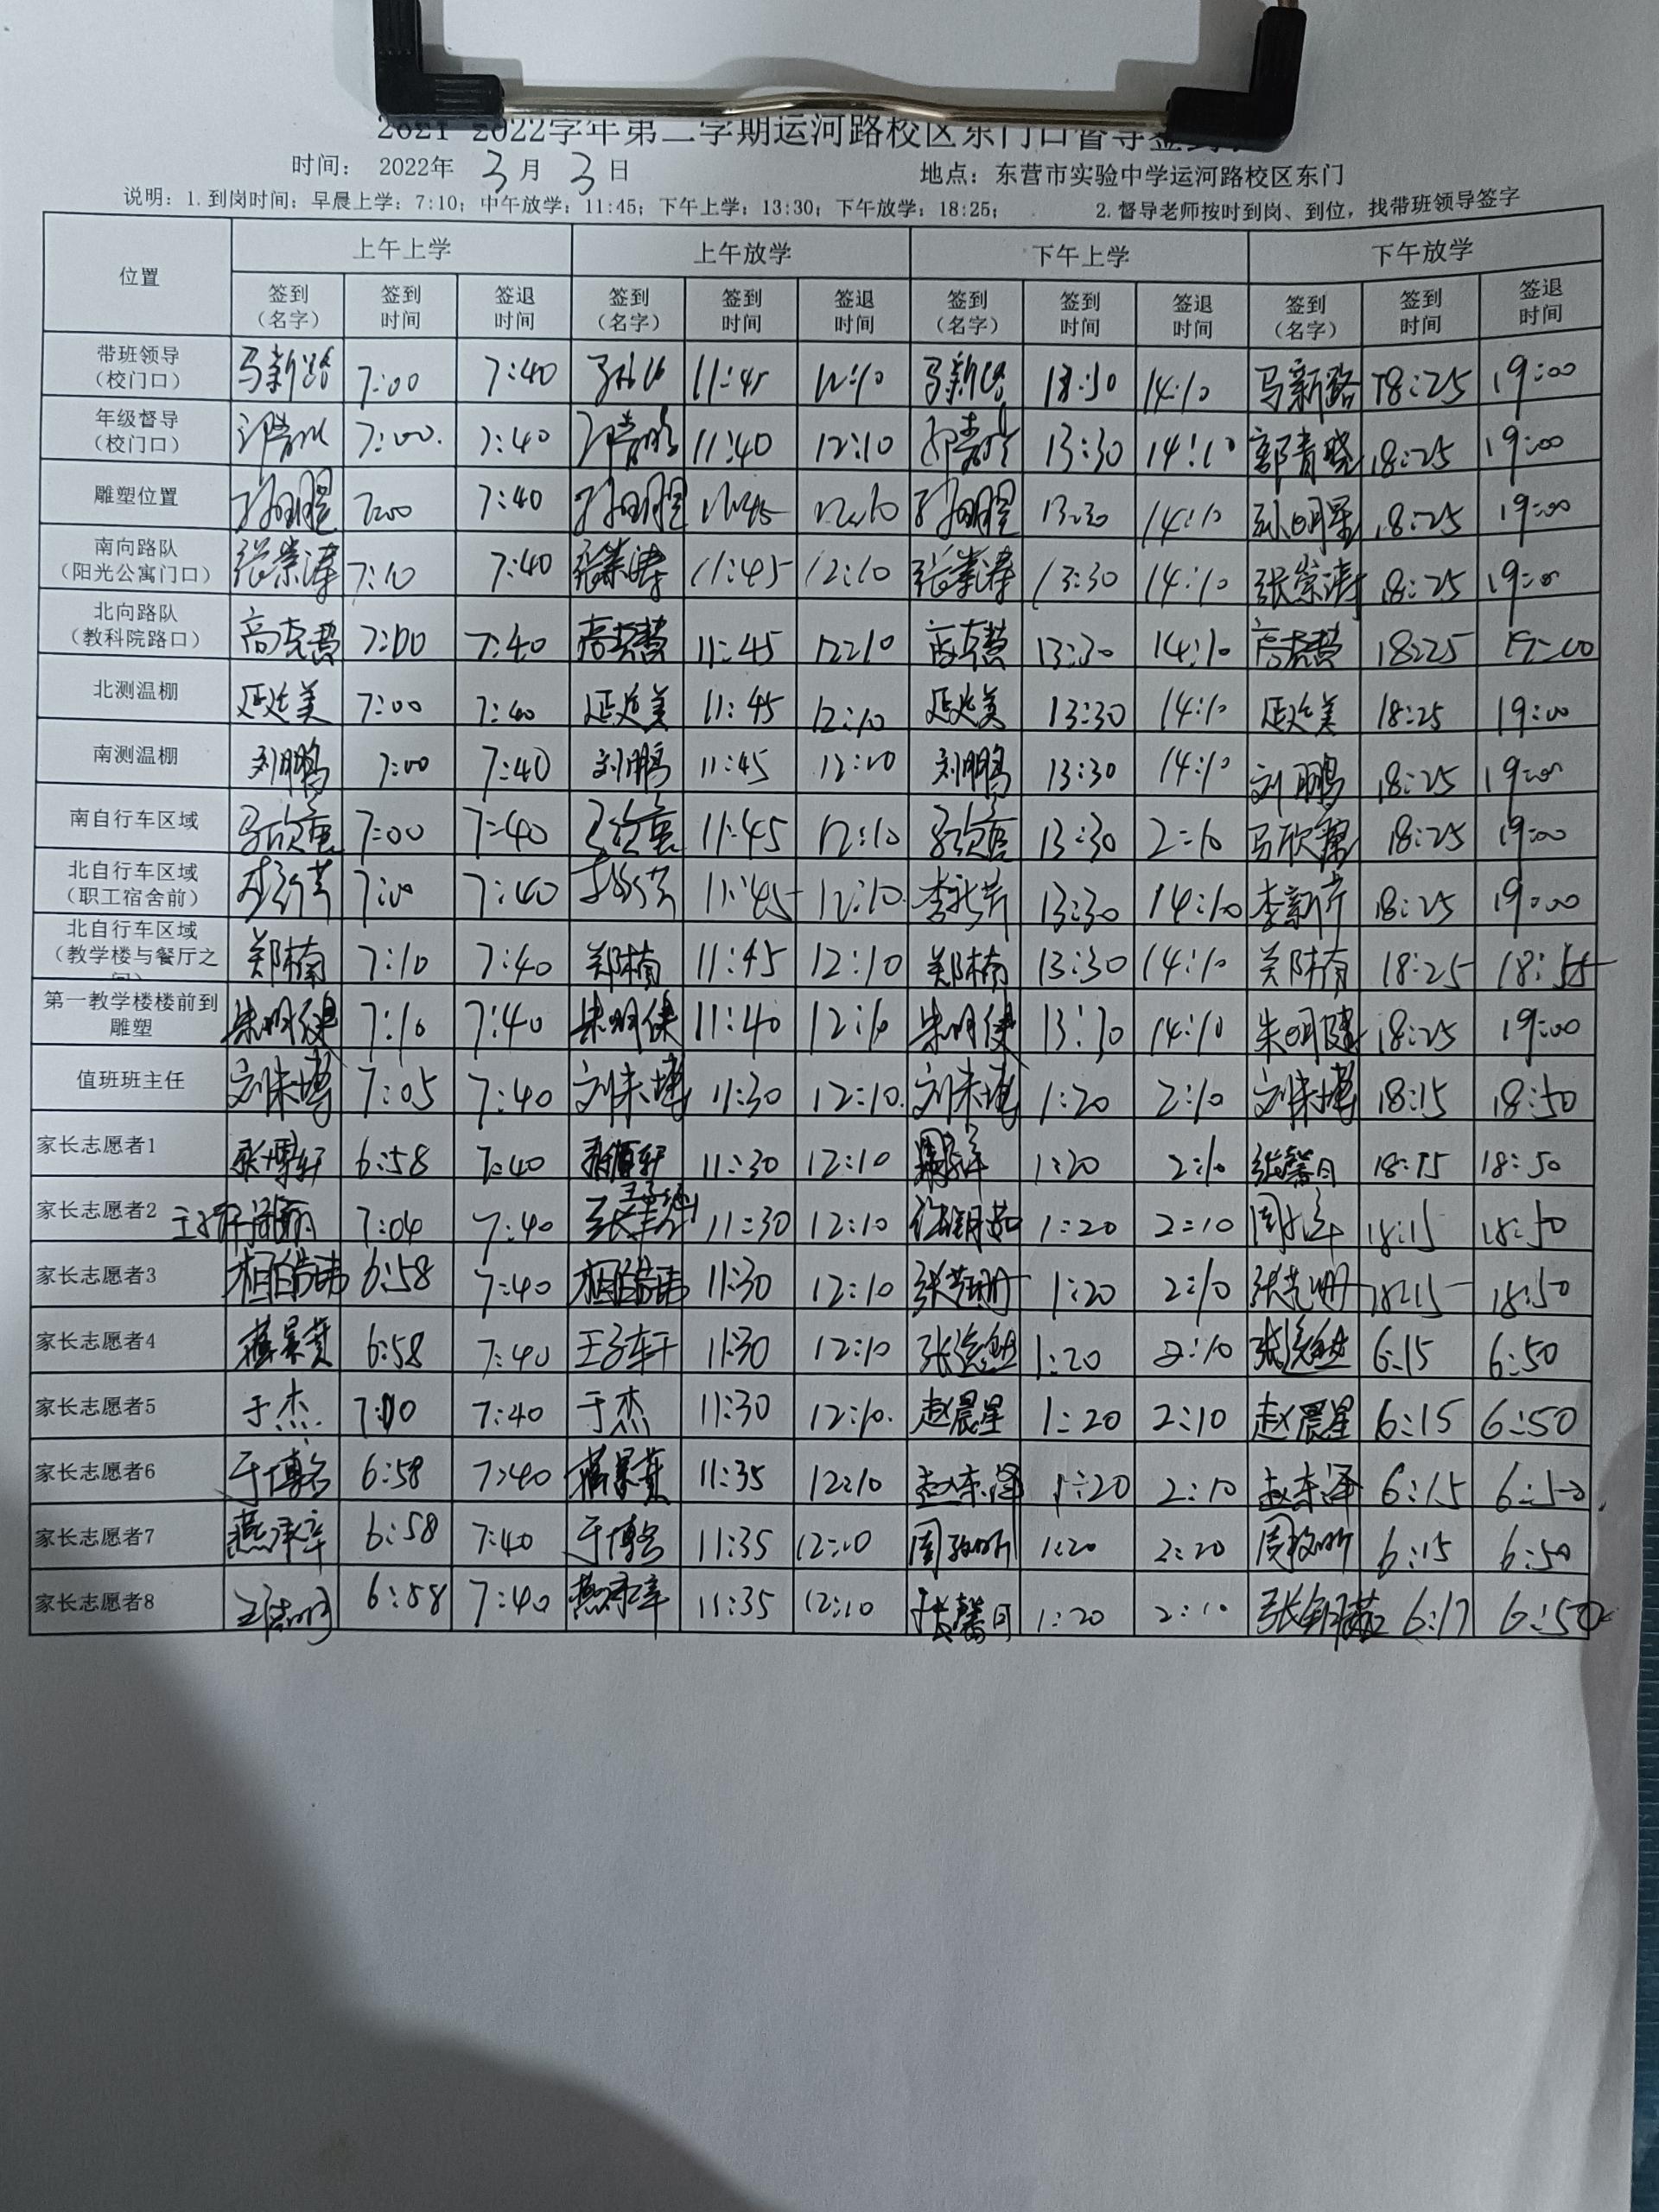 2021-2022学年第二学期运河路校区东门口督导签到
时间： 2022年 3 月 3 日 地点：东营市实验中学运河路校区东门
说明：1.到岗时间：早晨上学：7:10；中午放学：11:45；下午上学：13:30；下午放学：18:25； 2.督导老师按时到岗、到位，找带班领导签字
位置 上午上学 上午放学 下午上学 下午放学
签到（名字） 签到时间 签退时间 签到（名字） 签到时间 签退时间 签到（名字） 签到时间 签退时间 签到（名字） 签到时间 签退时间
带班领导（校门口） 马新路 7:00 7:40 11:45 12:10 马新路 13:30 14:10 马新路 18:25 19:00
年级督导（校门口） 郭青晓 7:00 7:40 郭青晓 11:40 12:10 郭青晓 13:30 14:10 郭青晓 18:25 19:00
雕塑位置 孙明星 7:00 7:40 孙明星 11:45 12:10 孙明星 13:30 14:10 孙明星 18:25 19:00
南向路队（阳光公寓门口） 张崇涛 7:10 7:40 张崇涛 11:45 12:10 张崇涛 13:30 14:10 张崇涛 18:25 19:00
北向路队（教科院路口） 高克慧 7:00 7:40 高克慧 11:45 12:10 高克慧 13:30 14:10 高克慧 18:25 19:00
北测温棚 延美 7:00 7:40 延美 11:45 12:10 延美 13:30 14:10 延美 18:25 19:00
南测温棚 刘鹏 7:00 7:40 刘鹏 11:45 12:00 刘鹏 13:30 14:10 刘鹏 18:25 19:00
南自行车区域 马欣 7:00 7:40 11:45 12:10 马欣 13:30 2:10 马欣 18:25 19:00
北自行车区域（职工宿舍前） 李新芹 7:00 7:40 李新芹 11:45 12:10 李新芹 13:30 14:10 李新芹 18:25 19:00
北自行车区域（教学楼与餐厅之间） 郑楠 7:10 7:40 郑楠 11:45 12:10 郑楠 13:30 14:10 郑楠 18:25 18:55
第一教学楼楼前到雕塑 朱明健 7:10 7:40 朱明健 11:40 12:10 朱明健 13:30 14:10 朱明健 18:25 19:00
值班班主任 刘朱博 7:05 7:40 刘朱博 11:30 12:10 刘朱博 1:20 2:10 刘朱博 18:15 18:50
家长志愿者1 张博轩 6:58 7:40 11:30 12:10 1:20 2:10 张馨日 18:15 18:50
家长志愿者2 7:04 7:40 11:30 12:10 1:20 2:10 18:15 18:50
家长志愿者3 6:58 7:40 11:30 12:10 张芫珊 1:20 2:10 张芫珊 18:15 18:50
家长志愿者4 6:58 7:40 王子轩 11:30 12:10 1:20 2:10 6:15 6:50
家长志愿者5 于杰 7:00 7:40 于杰 11:30 12:10 赵晨星 1:20 2:10 赵晨星 6:15 6:50
家长志愿者6 于博名 6:58 7:40 11:35 12:10 赵东泽 1:20 2:10 赵东泽 6:15 6:50
家长志愿者7 6:58 7:40 于博名 11:35 12:10 周牧昕 1:20 2:20 周牧昕 6:15 6:50
家长志愿者8 6:58 7:40 11:35 12:10 张馨日 1:20 2:10 6:17 6:50